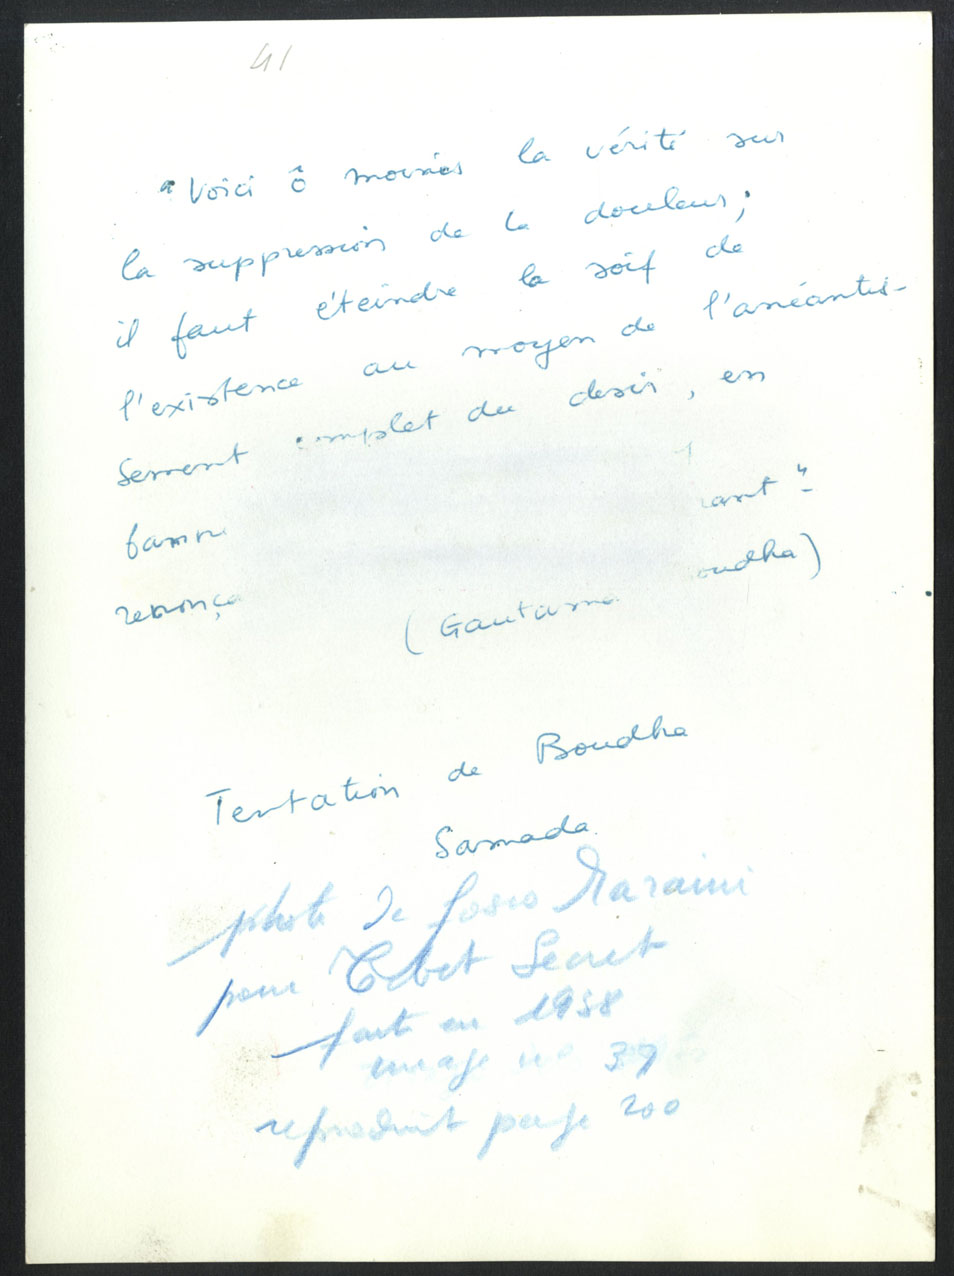 41
"Voici ô moines la vérité sur
la suppression de la douleur;
il faut éteindre la soif de
l'existence au moyen de l'anéantis-
sement complet du desir, en
renonça
(Gautama
Tentation de Boudha
Samada
photo de Fosco Maraini
pour Tibet Secret
fait en 1938
image no 39
reproduit page 200